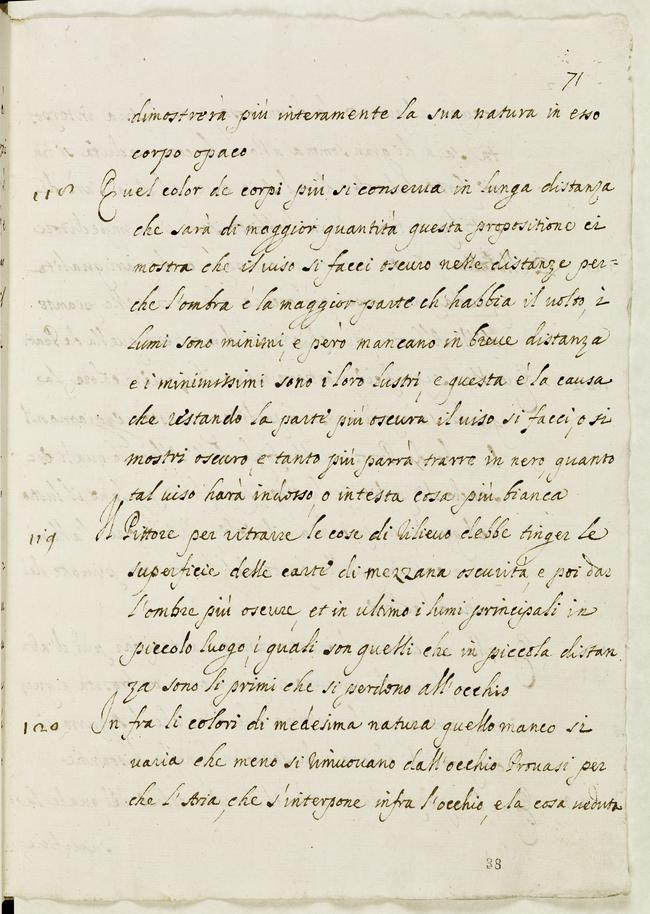 71
dimostrerà più interamente la sua natura in esso
corpo opaco
118 Quel color de corpi più si conserva in lunga distanza
che sarà di maggior quantità questa propositione ci
mostra che il viso si facci oscuro nelle distanze per=
che l'ombra è la maggior parte ch habbia il volto, i
lumi sono minimi, e però mancano in breve distanza
e i minimissimi sono i loro lustri, e questa è la causa
che restando la parte più oscura il viso si facci, o si
mostri oscuro, e tanto più parrà trarre in nero, quanto
tal viso harà indosso, o in testa cosa più bianca
119 Il Pittore per ritrarre le cose di rilievo debbe tinger le
superficie delle carte di mezzana oscurità, e poi dar
l'ombre più oscure, et in ultimo i lumi principali in
piccolo luogo, i quali son quelli che in piccola distan
za sono li primi che si perdono all'occhio
120 In fra li colori di medesima natura quello manco si
varia che meno si rimuovano dall'occhio Provasi per
che l'Aria, che s'interpone infra l'occhio, e la cosa veduta
38